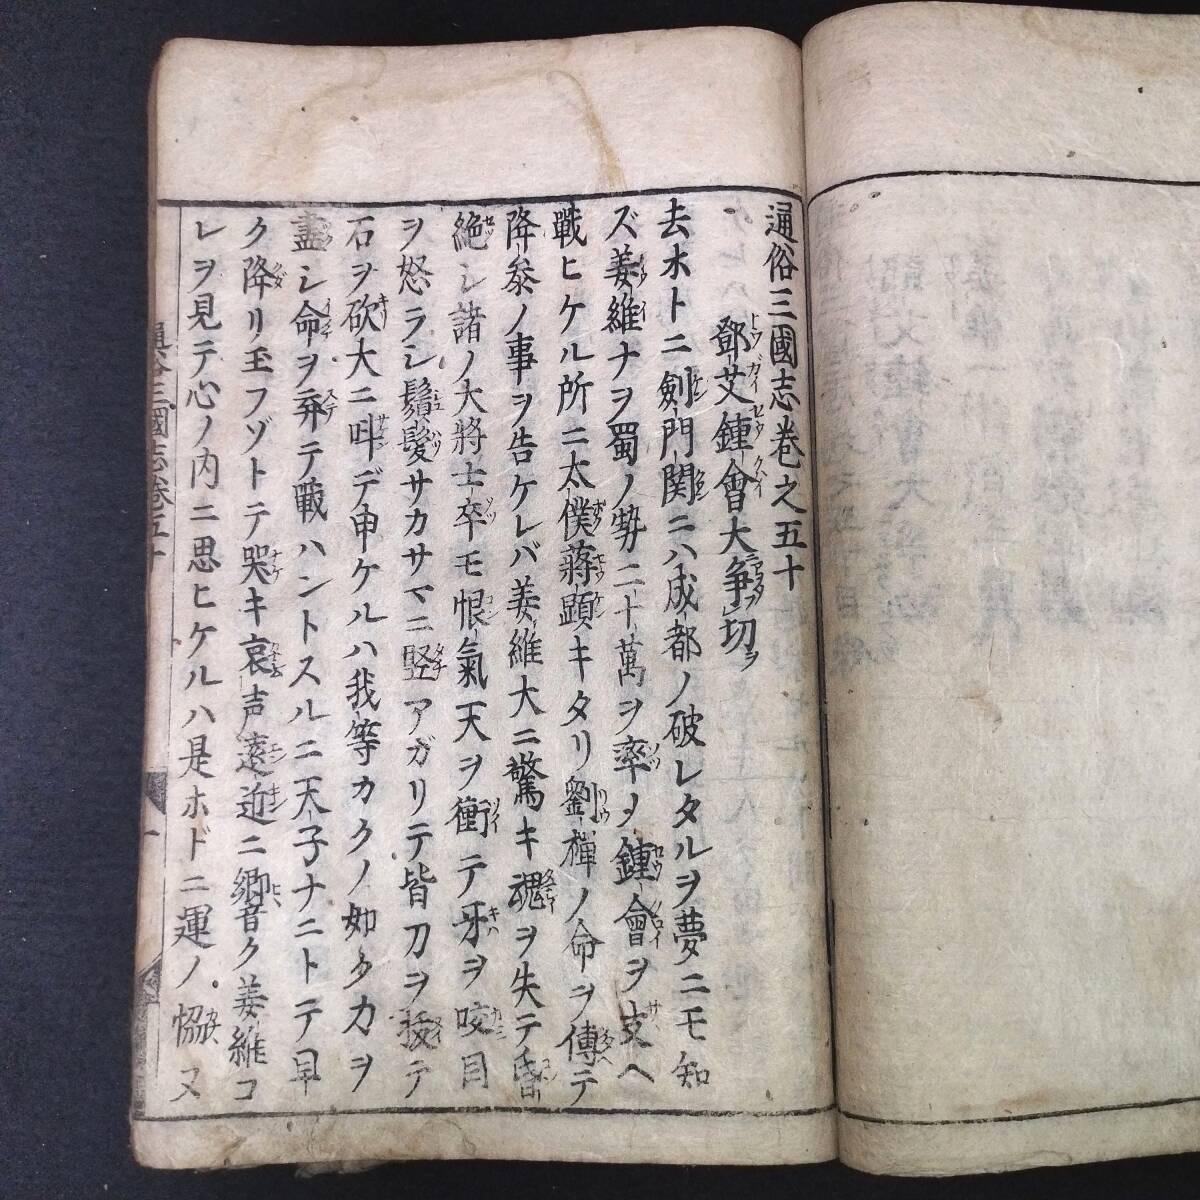 通俗三國志巻之五十
鄧艾鍾會大争切ヲ
去ホトニ剣門関ニハ成都ノ破レタルヲ夢ニモ知
ズ姜維ナヲ蜀ノ勢二十萬ヲ率メ鍾會ヲ支ヘ
戰ヒケル所ニ太僕蒋顕キタリ劉禅ノ命ヲ傳テ
降参ノ事ヲ告ケレバ姜維大ニ驚キ魂ヲ失テ昏
絶シ諸ノ大將士卒モ恨氣天ヲ衝テ牙ヲ咬目
ヲ怒ラシ鬚髮サカサマニ竪アガリテ皆刀ヲ抜テ
石ヲ砍大ニ呌デ申ケルハ我等カクノ如ク力ヲ
盡シ命ヲ弃テ戰ハントスルニ天子ナニトテ早
ク降リ玉フゾトテ哭キ哀声遠近ニ響ク姜維コ
レヲ見テ心ノ内ニ思ヒケルハ是ホドニ運ノ恊ヌ
通俗三國志巻五十
一